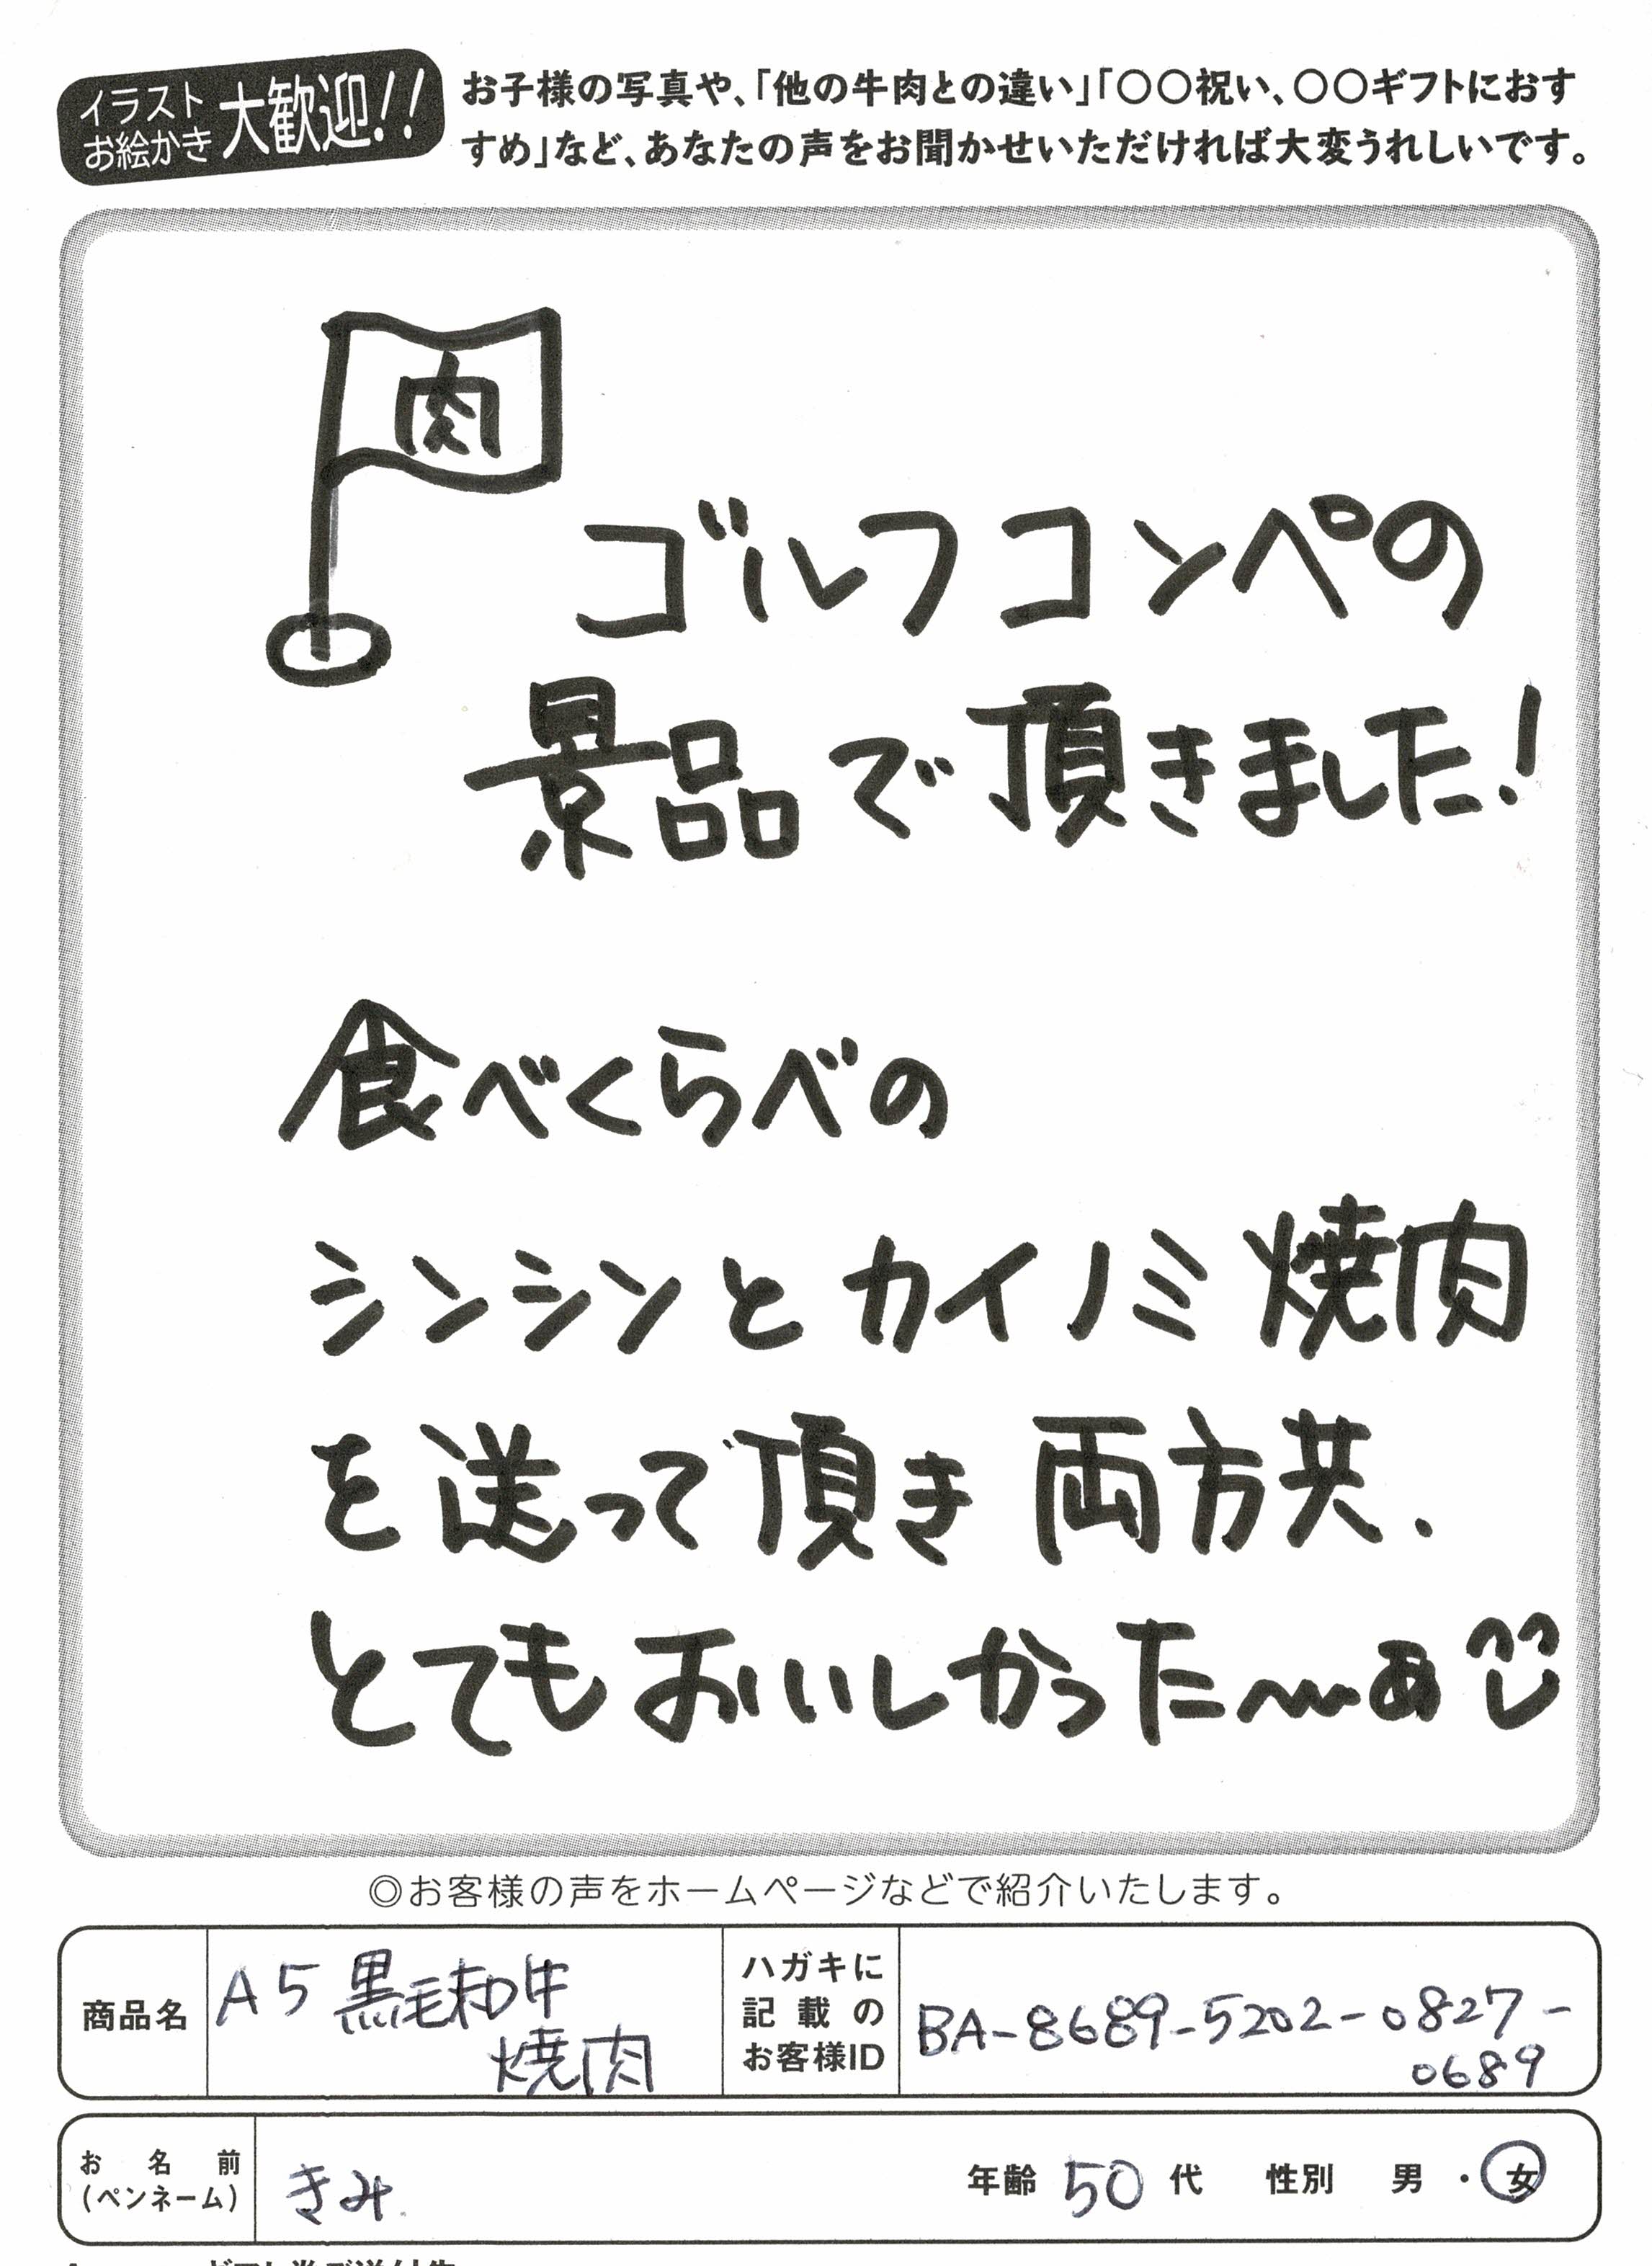 イラスト
お絵かき
大歓迎!!
お子様の写真や、「他の牛肉との違い」「〇〇祝い、〇〇ギフトにおす
すめ」など、あなたの声をお聞かせいただければ大変うれしいです。
肉
ゴルフコンペの
景品で頂きました!
食べくらべの
シンシンとカイノミ焼肉
を送って頂き両方共、
とてもおいしかった〜ぁ
◎お客様の声をホームページなどで紹介いたします。
商品名
A5黒毛和牛
焼肉
ハガキに
記載の
お客様ID
BA-8689-5202-0827-
0689
お名前
(ペンネーム)
きみ
年齢 50 代 性別 男・女